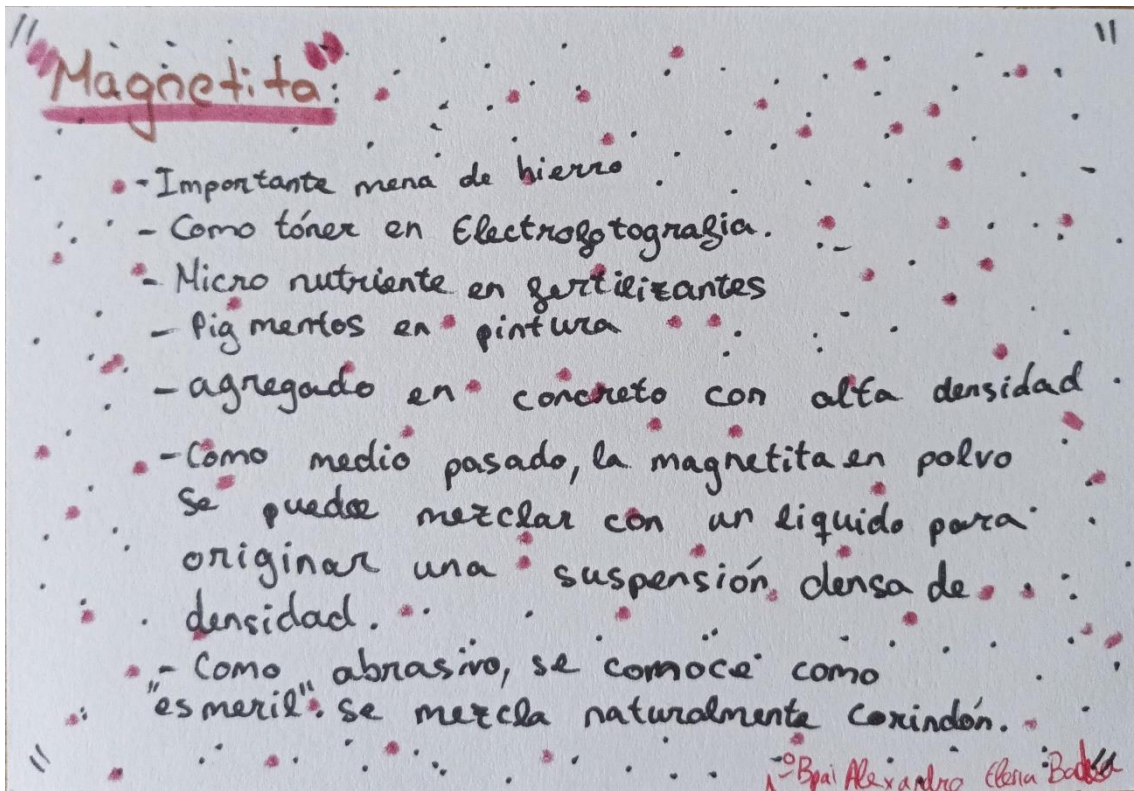 "Magnetita":
- Importante mena de hierro
- Como tóner en Electrofotografia.
- Micro nutriente en fertilizantes
- Pigmentos en pintura
- agregado en concreto con alta densidad
- Como medio pasado, la magnetita en polvo
se puede mezclar con un liquido para
originar una suspensión densa de
densidad.
- Como abrasivo, se comoce como
"esmeril". se mezcla naturalmente corindón.
1º Bpai Alexandra Elena